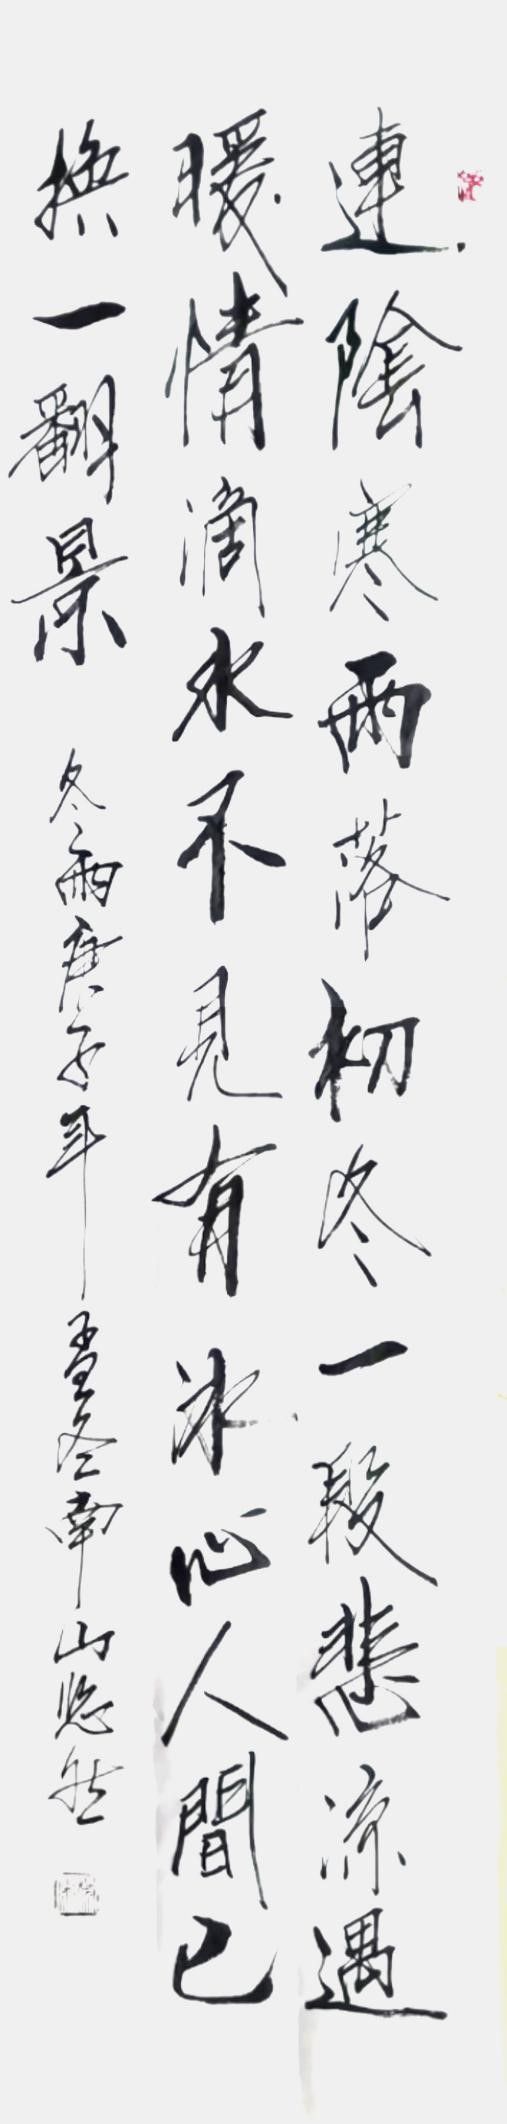 連陰寒雨落初冬一段悲涼遇
暖情滴水不見有冰心人間已
換一翻景
冬雨庚子年孟冬南山悠然